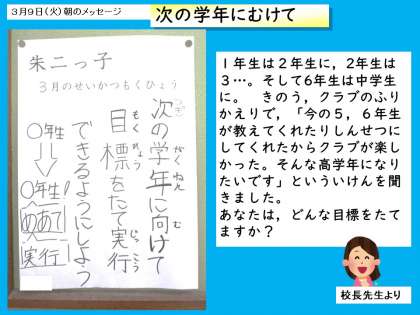 3月9日(火)朝のメッセージ
次の学年にむけて
朱二っ子
3月のせいかつもくひょう
次の学年に向けて
目標をたて実行
できるようにしよう
つぎ
がくねん
む
もくひょう
じっこう
〇年生
〇年生
めあて
実行
1年生は2年生に,2年生は
3…。そして6年生は中学生
に。 きのう,クラブのふり
かえりで,「今の5,6年生
が教えてくれたりしんせつに
してくれたからクラブが楽し
かった。そんな高学年になり
たいです」といういけんを聞
きました。
あなたは,どんな目標をたて
ますか?
校長先生より